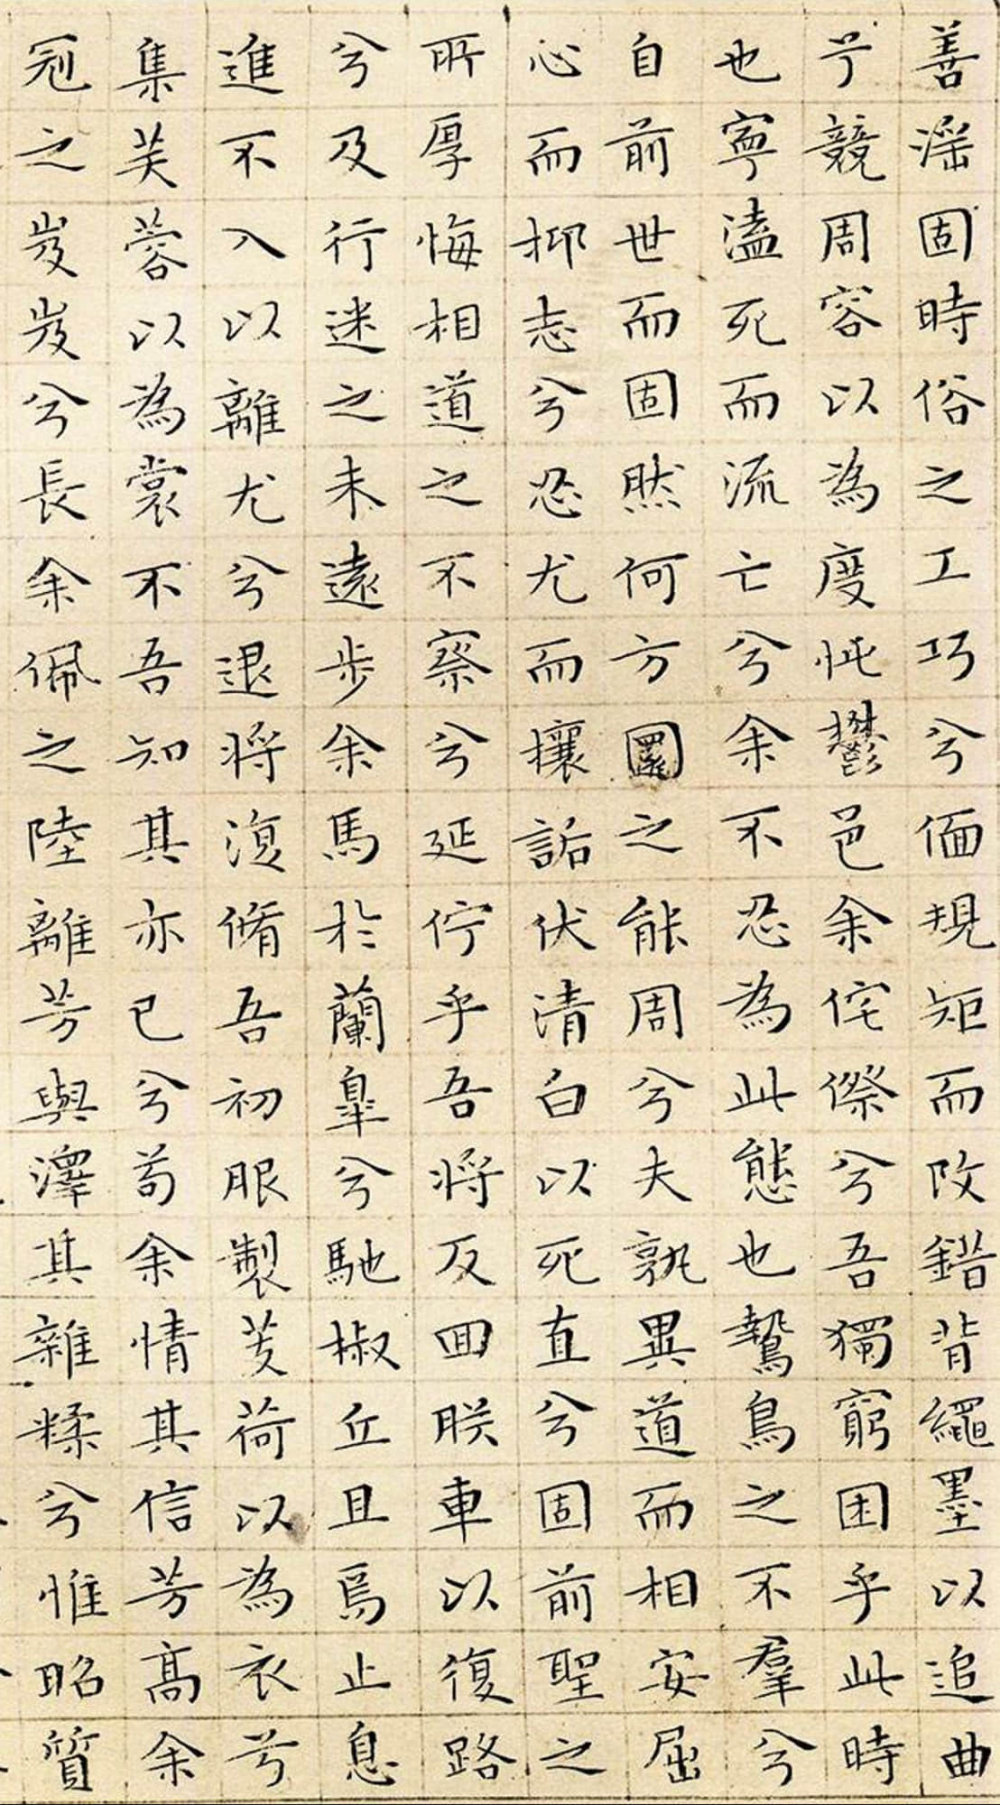 善淫固時俗之工巧兮偭規矩而改錯背繩墨以追曲
兮競周容以為度忳鬱邑余侘傺兮吾獨窮困乎此時
也寧溘死而流亡兮余不忍為此態也鷙鳥之不羣兮
自前世而固然何方圜之能周兮夫孰異道而相安屈
心而抑志兮忍尤而攘詬伏清白以死直兮固前聖之
所厚悔相道之不察兮延佇乎吾將反回朕車以復路
兮及行迷之未遠步余馬於蘭皐兮馳椒丘且焉止息
進不入以離尤兮退將復脩吾初服製芰荷以為衣兮
集芙蓉以為裳不吾知其亦已兮苟余情其信芳高余
冠之岌岌兮長余佩之陸離芳與澤其雜糅兮惟昭質